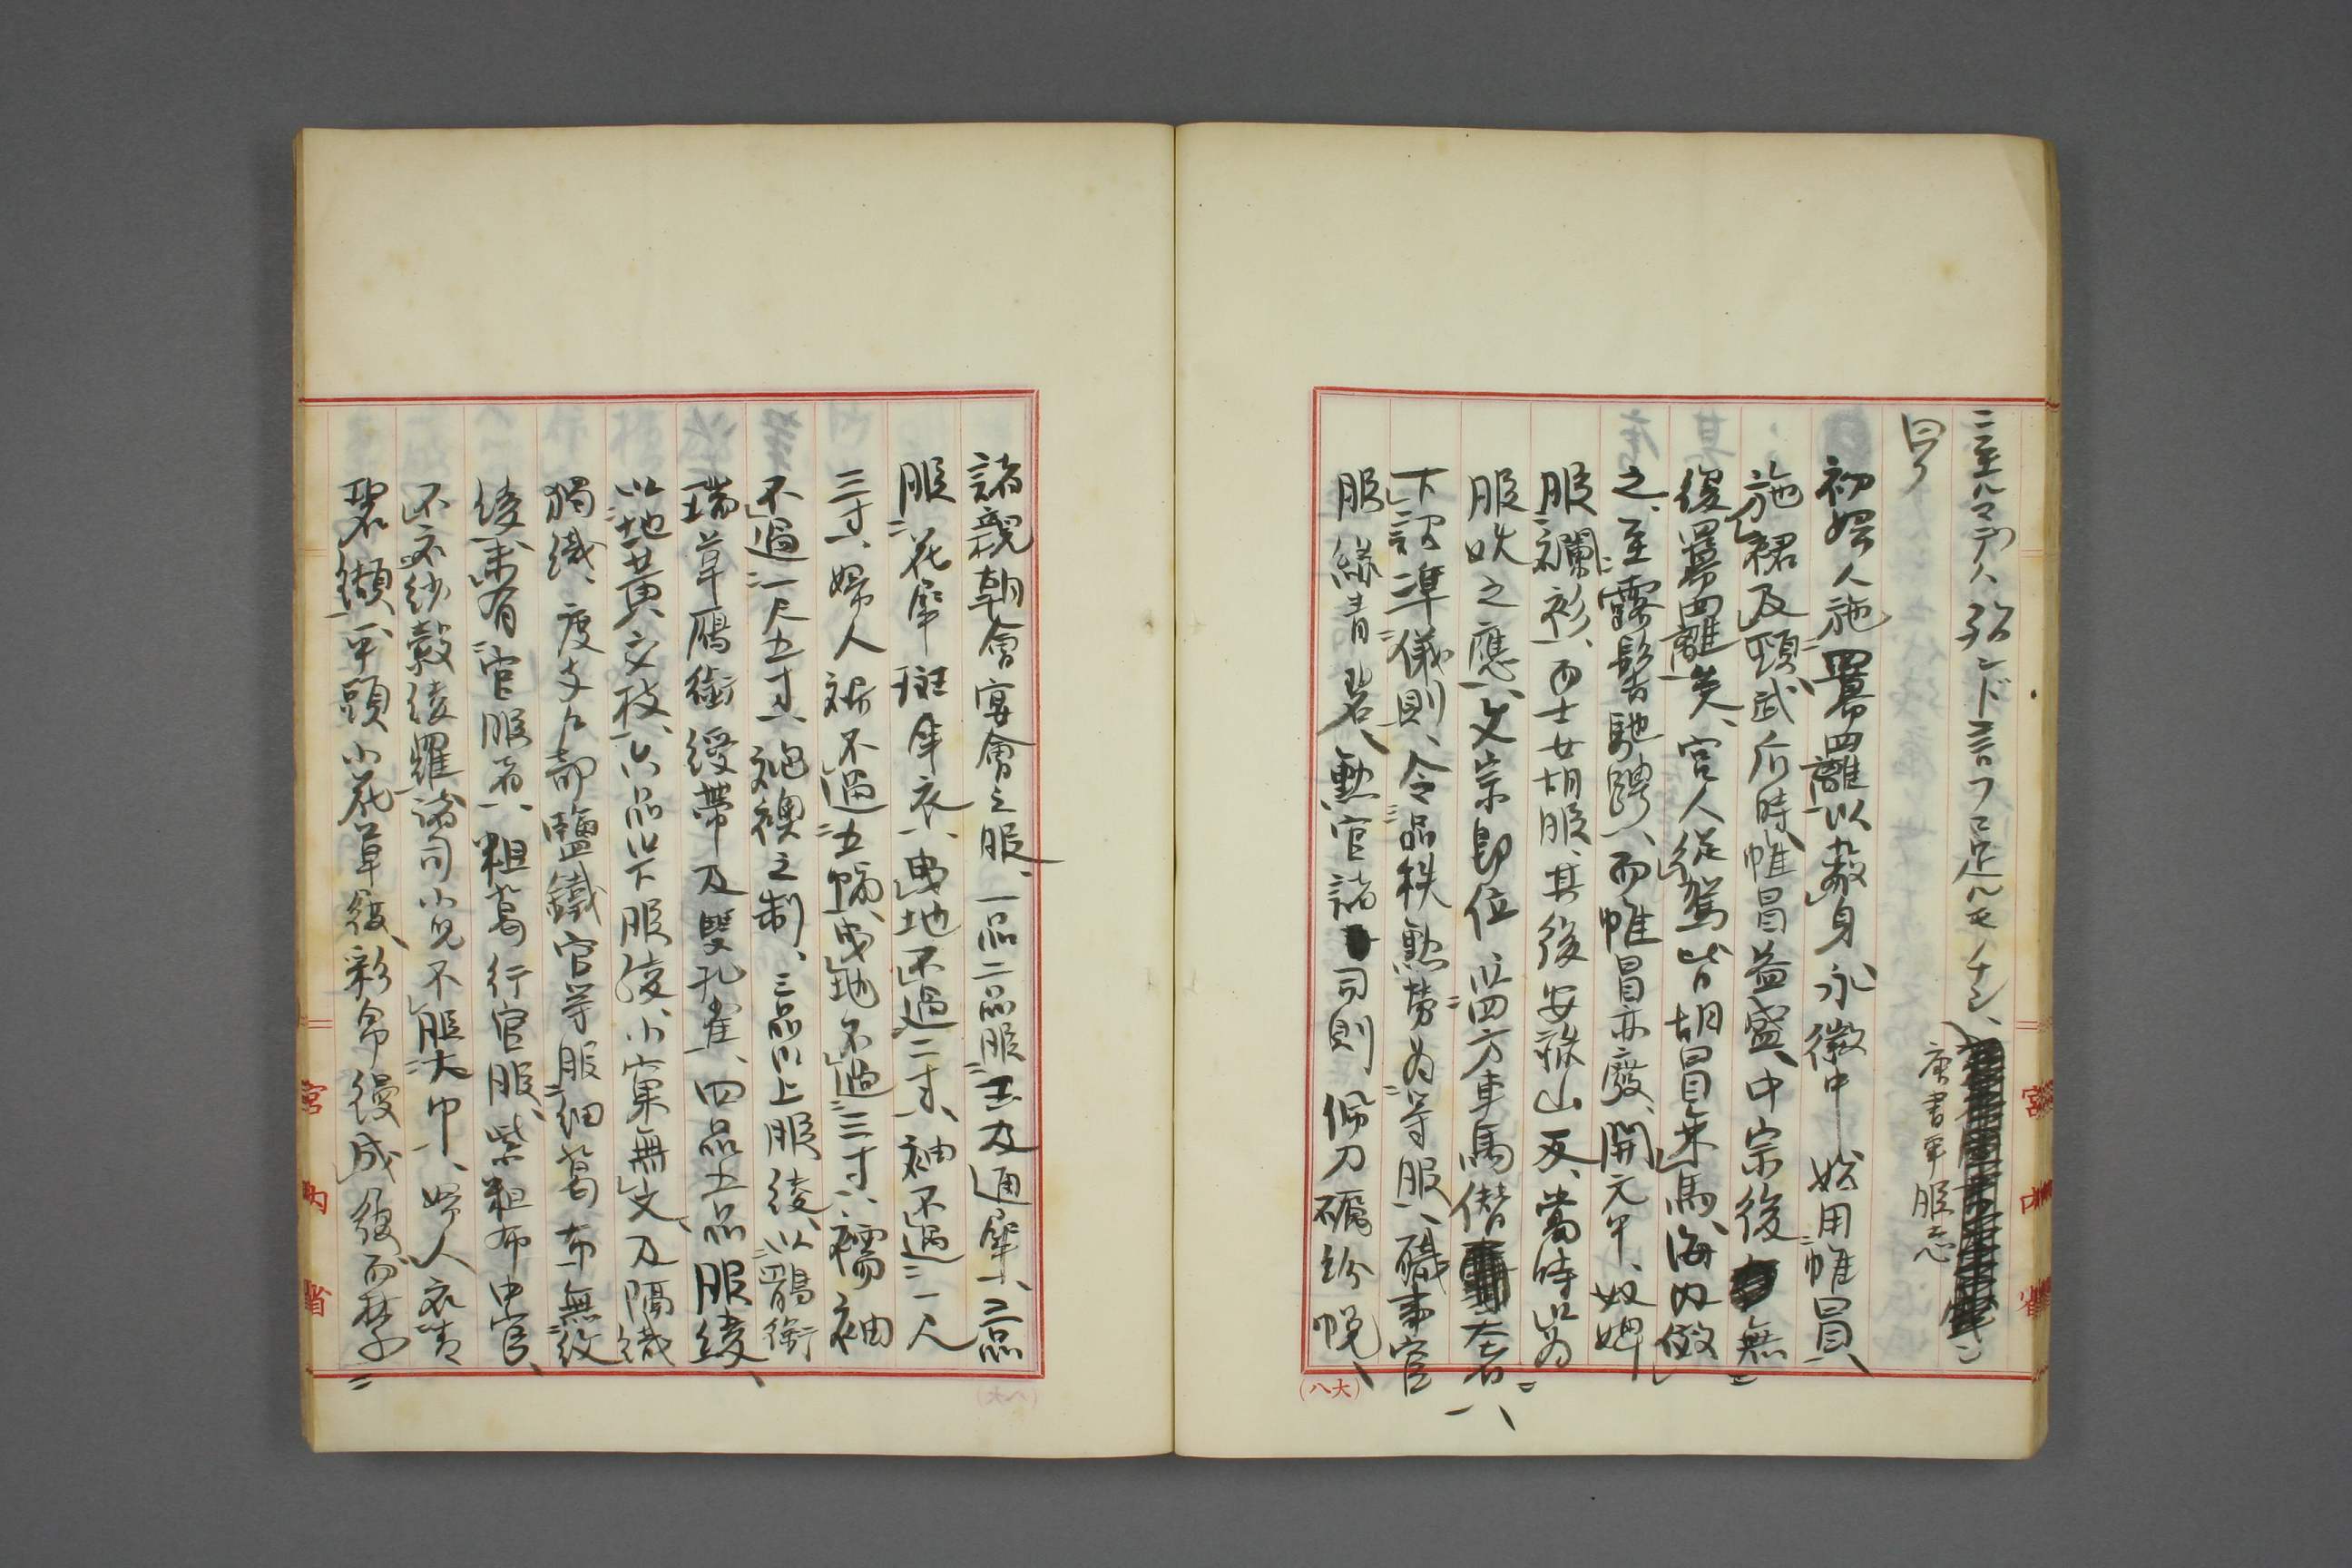 ニ至ルマデハ殆ンド言フニ足ルモノナシ、
唐書車服志ニ
曰ク
初婦人施羃䍦以蔽身永徽中始用帷冒、
施裙及頸、武后時、帷冒益盛、中宗後無
復羃䍦矣、宮人從駕皆胡冒乘馬、海内傚
之、至露髻馳騁、而帷冒亦廢、開元中、奴婢
服襴衫、而士女胡服、其後安祿山反、當時以為
服妖之應、文宗即位以四方車馬僭奢、
下詔準儀則、令品秩勲勞為等服、職事官
服綠青碧、勲官諸司則佩刀礪紛帨、
諸親朝會宴會之服、一品二品服玉及通犀、三品
服花犀班犀、衣曳地不過二寸、袖不過一尺
三寸、婦人裙不過五幅、曳地不過三寸、襦袖
不過一尺五寸、袍襖之制、三品以上服綾、以鶻銜
瑞草鴈銜綬帶及雙孔雀、四品五品服綾、
以地黄交枝、六品以下服綾、小窠無文、及隔織
獨織、度支戶部鹽鐵官等服細葛布無紋
綾、未有官服者、粗葛行官服、紫粗布中官、
不衣紗縠綾羅諸司小兒不服大巾、婦人衣青
碧纈、平頭小花草履、彩帛縵成履而禁
宮內省
宮內省
(大八)